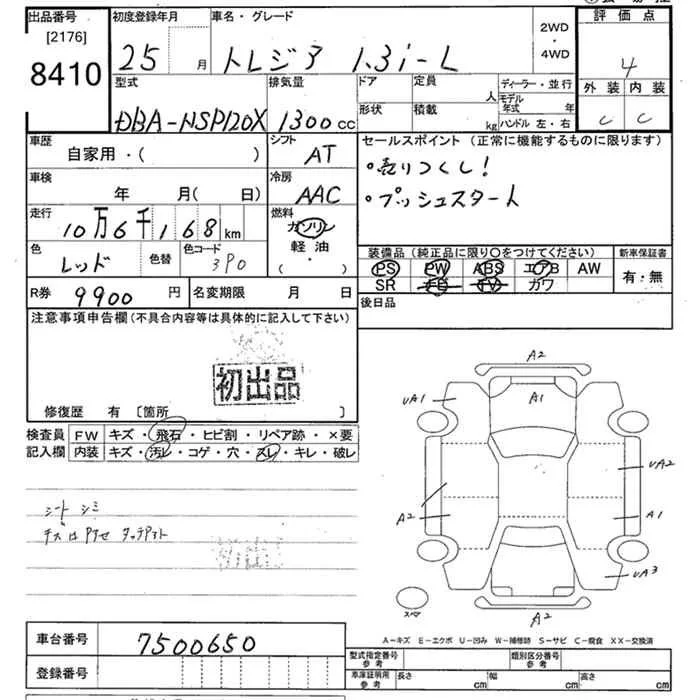 出品番号 初度登録年月 車名・グレード
[2176]
8410
25 月 トレジア 1.3i-L
2WD
・
4WD
評価点
4
外装 内装
C C
型式 排気量 ドア 定員 ディーラー・並行
人 モデル年式 年
DBA-NSP120X 1300cc 形状 積載 kg ハンドル 左・右
車歴 シフト セールスポイント (正常に機能するものに限ります)
自家用・( ) AT
・売りつくし!
車検 冷房
年 月(日) AAC
・プッシュスタート
走行 燃料
10万6千168km ガソリン
軽油
・( )
色 色替 色コード
レッド 3P0
装備品 (純正品に限り〇をつけてください) 新車保証書
PS PW ABS エアB AW 有・無
SR ガワ
R券 9900円 名変期限 月 日
後日品
注意事項申告欄(不具合内容等は具体的に記入して下さい)
初出品
修復歴 有 [箇所 ]
検査員 FW キズ・飛石・ヒビ割・リペア跡・×要
記入欄 内装 キズ・汚レ・コゲ・穴・スレ・キレ・破レ
シート シミ
A2
UA1 A1
UA2
A2 A1
UA3
A2
スペア
A-キズ E-エクボ U-凹み W-補修跡 S-サビ C-腐食 XX-交換済
車台番号 7500650
登録番号
型式指定番号 参考 類別区分番号 参考
車庫証明用 参考 長さ cm 幅 cm 高さ cm